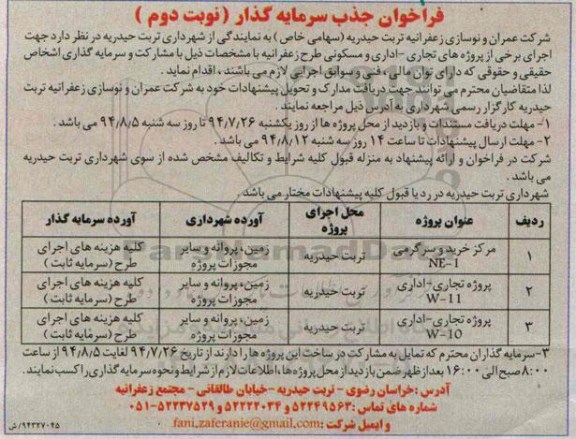 فراخوان جذب سرمایه گذار ( نوبت دوم )
شرکت عمران و نوسازی زعفرانیه تربت حیدریه (سهامی خاص ) به نمایندگی از شهرداری تربت حیدریه در نظر دارد جهت
اجرای برخی از پروژه های تجاری -اداری و مسکونی طرح زعفرانیه با مشخصات ذیل با مشارکت و سرمایه گذاری اشخاص
حقیقی و حقوقی که دارای توان مالی ، فنی و سوابق اجرایی لازم می باشند ، اقدام نماید .
لذا متقاضیان محترم می توانند جهت دریافت مدارک و تحویل پیشنهادات خود به شرکت عمران و نوسازی زعفرانیه تربت
حیدریه کارگزار رسمی شهرداری به آدرس ذیل مراجعه نمایند .
۱- مهلت دریافت مستندات و بازدید از محل پروژه ها از روز یکشنبه ۹۴/۷/۲۶ تا روز سه شنبه ۹۴/۸/۵ می باشد .
۲- مهلت ارسال پیشنهادات تا ساعت ۱۴ روز سه شنبه ۹۴/۸/۱۲ می باشد .
شرکت در فراخوان و ارائه پیشنهاد به منزله قبول کلیه شرایط و تکالیف مشخص شده از سوی شهرداری تربت حیدریه
می باشد .
شهرداری تربت حیدریه در رد یا قبول کلیه پیشنهادات مختار می باشد .
ردیف عنوان پروژه محل اجرای پروژه آورده شهرداری آورده سرمایه گذار
۱ مرکز خرید و سرگرمی NE-1 تربت حیدریه زمین، پروانه و سایر مجوزات پروژه کلیه هزینه های اجرای طرح (سرمایه ثابت )
۲ پروژه تجاری-اداری W-11 تربت حیدریه زمین، پروانه و سایر مجوزات پروژه کلیه هزینه های اجرای طرح (سرمایه ثابت )
۳ پروژه تجاری-اداری W-10 تربت حیدریه زمین، پروانه و سایر مجوزات پروژه کلیه هزینه های اجرای طرح (سرمایه ثابت )
۳-سرمایه گذاران محترم که تمایل به مشارکت در ساخت این پروژه ها را دارند از تاریخ ۹۴/۷/۲۶ لغایت ۹۴/۸/۵ از ساعت
۸:۰۰ صبح الی ۱۶:۰۰ بعد از ظهر ضمن بازدید از محل پروژه ها ، اطلاعات لازم از شرایط و نحوه سرمایه گذاری را کسب نمایند.
آدرس : خراسان رضوی - تربت حیدریه -خیابان طالقانی - مجتمع زعفرانیه
شماره های تماس : ۵۲۲۴۹۵۶۳ و ۵۲۲۲۲۰۳۴ و ۵۲۲۳۷۵۲۹-۰۵۱
و ایمیل شرکت : fani.zaferanie@gmail.com
۹۴۳۲۷۰۴۵/ش